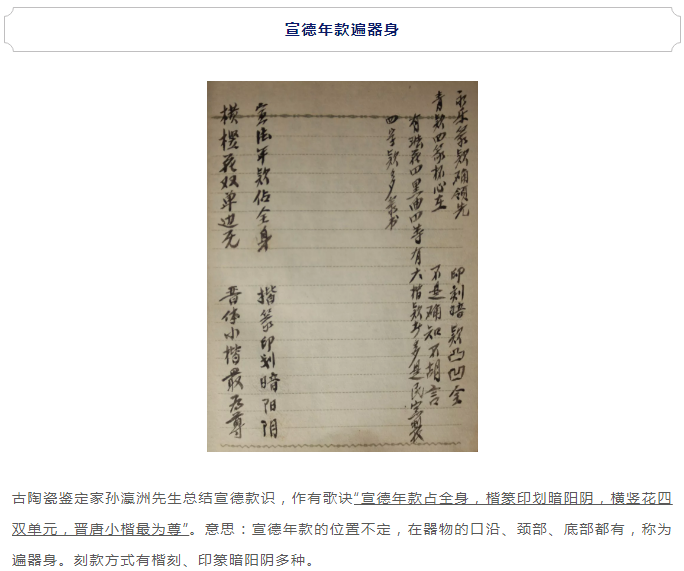 宣德年款遍器身
永乐篆款确领先 印刻暗款凸凹全
青款四篆杯心在 不是确知不胡言
有 花四里面四等有大楷款少多是民窑製
四号款多篆书
宣德年款佔全身 楷篆印划暗阳阴
横 花双单边无 晋体小楷最为尊
古陶瓷鉴定家孙瀛洲先生总结宣德款识，作有歌诀“宣德年款占全身，楷篆印划暗阳阴，横竖花四
双单元，晋唐小楷最为尊”。意思：宣德年款的位置不定，在器物的口沿、颈部、底部都有，称为
遍器身。刻款方式有楷刻、印篆暗阳阴多种。